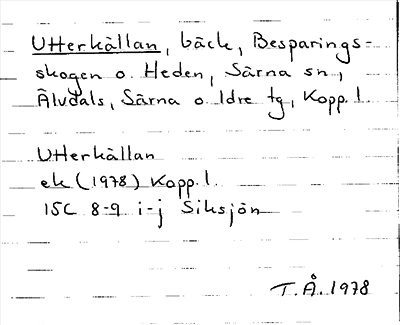 Utterkällan, bäck, Besparings-
skogen o. Heden, Särna sn,
Älvdals, Särna o Idre tg, Kopp. l.
Utterkällan
ek (1978) Kopp. l.
15C 8-9 i-j Siksjön
T.Å. 1978